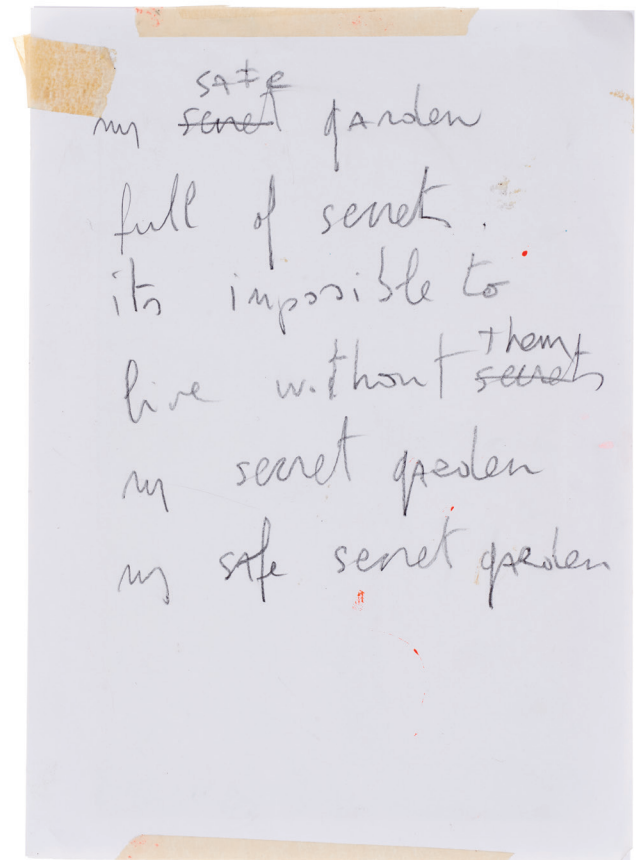 safe
my secret garden
full of secret.
its impossible to
them
live without secrets
my secret garden
my safe secret garden